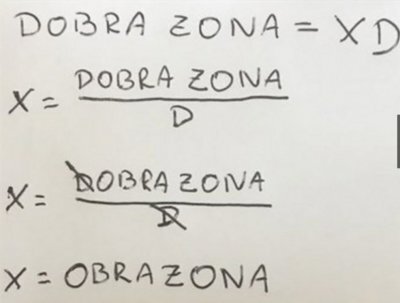 DOBRA ZONA = XD
X = DOBRA ZONA
D
X = DOBRA ZONA
D
X = OBRAZONA